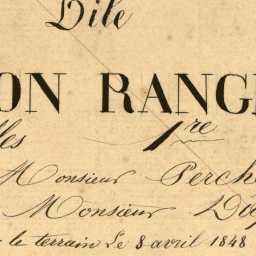 Lile
ON RANG
lles 1re
Monsieur Perch
Monsieur
le terrain le 8 avril 1848